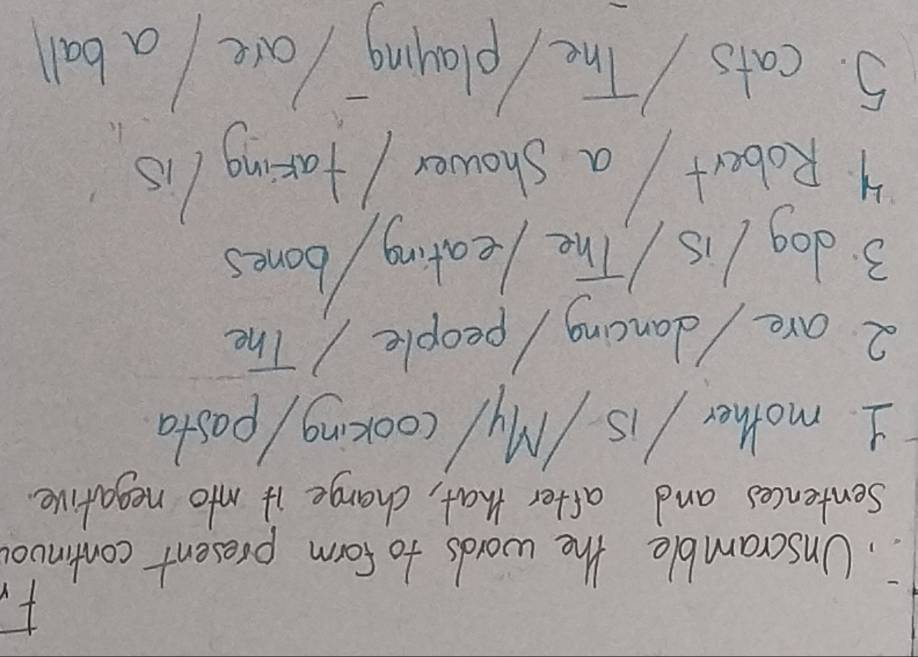 Unscramble the words to form present continuou
sentences and after that, change it into negative.
1. mother / is / My / cooking / pasta
2. are / dancing / people / The
3. dog / is / The / eating / bones
4. Robert / a shower / taking / is
5. cats / The / playing / are / a ball